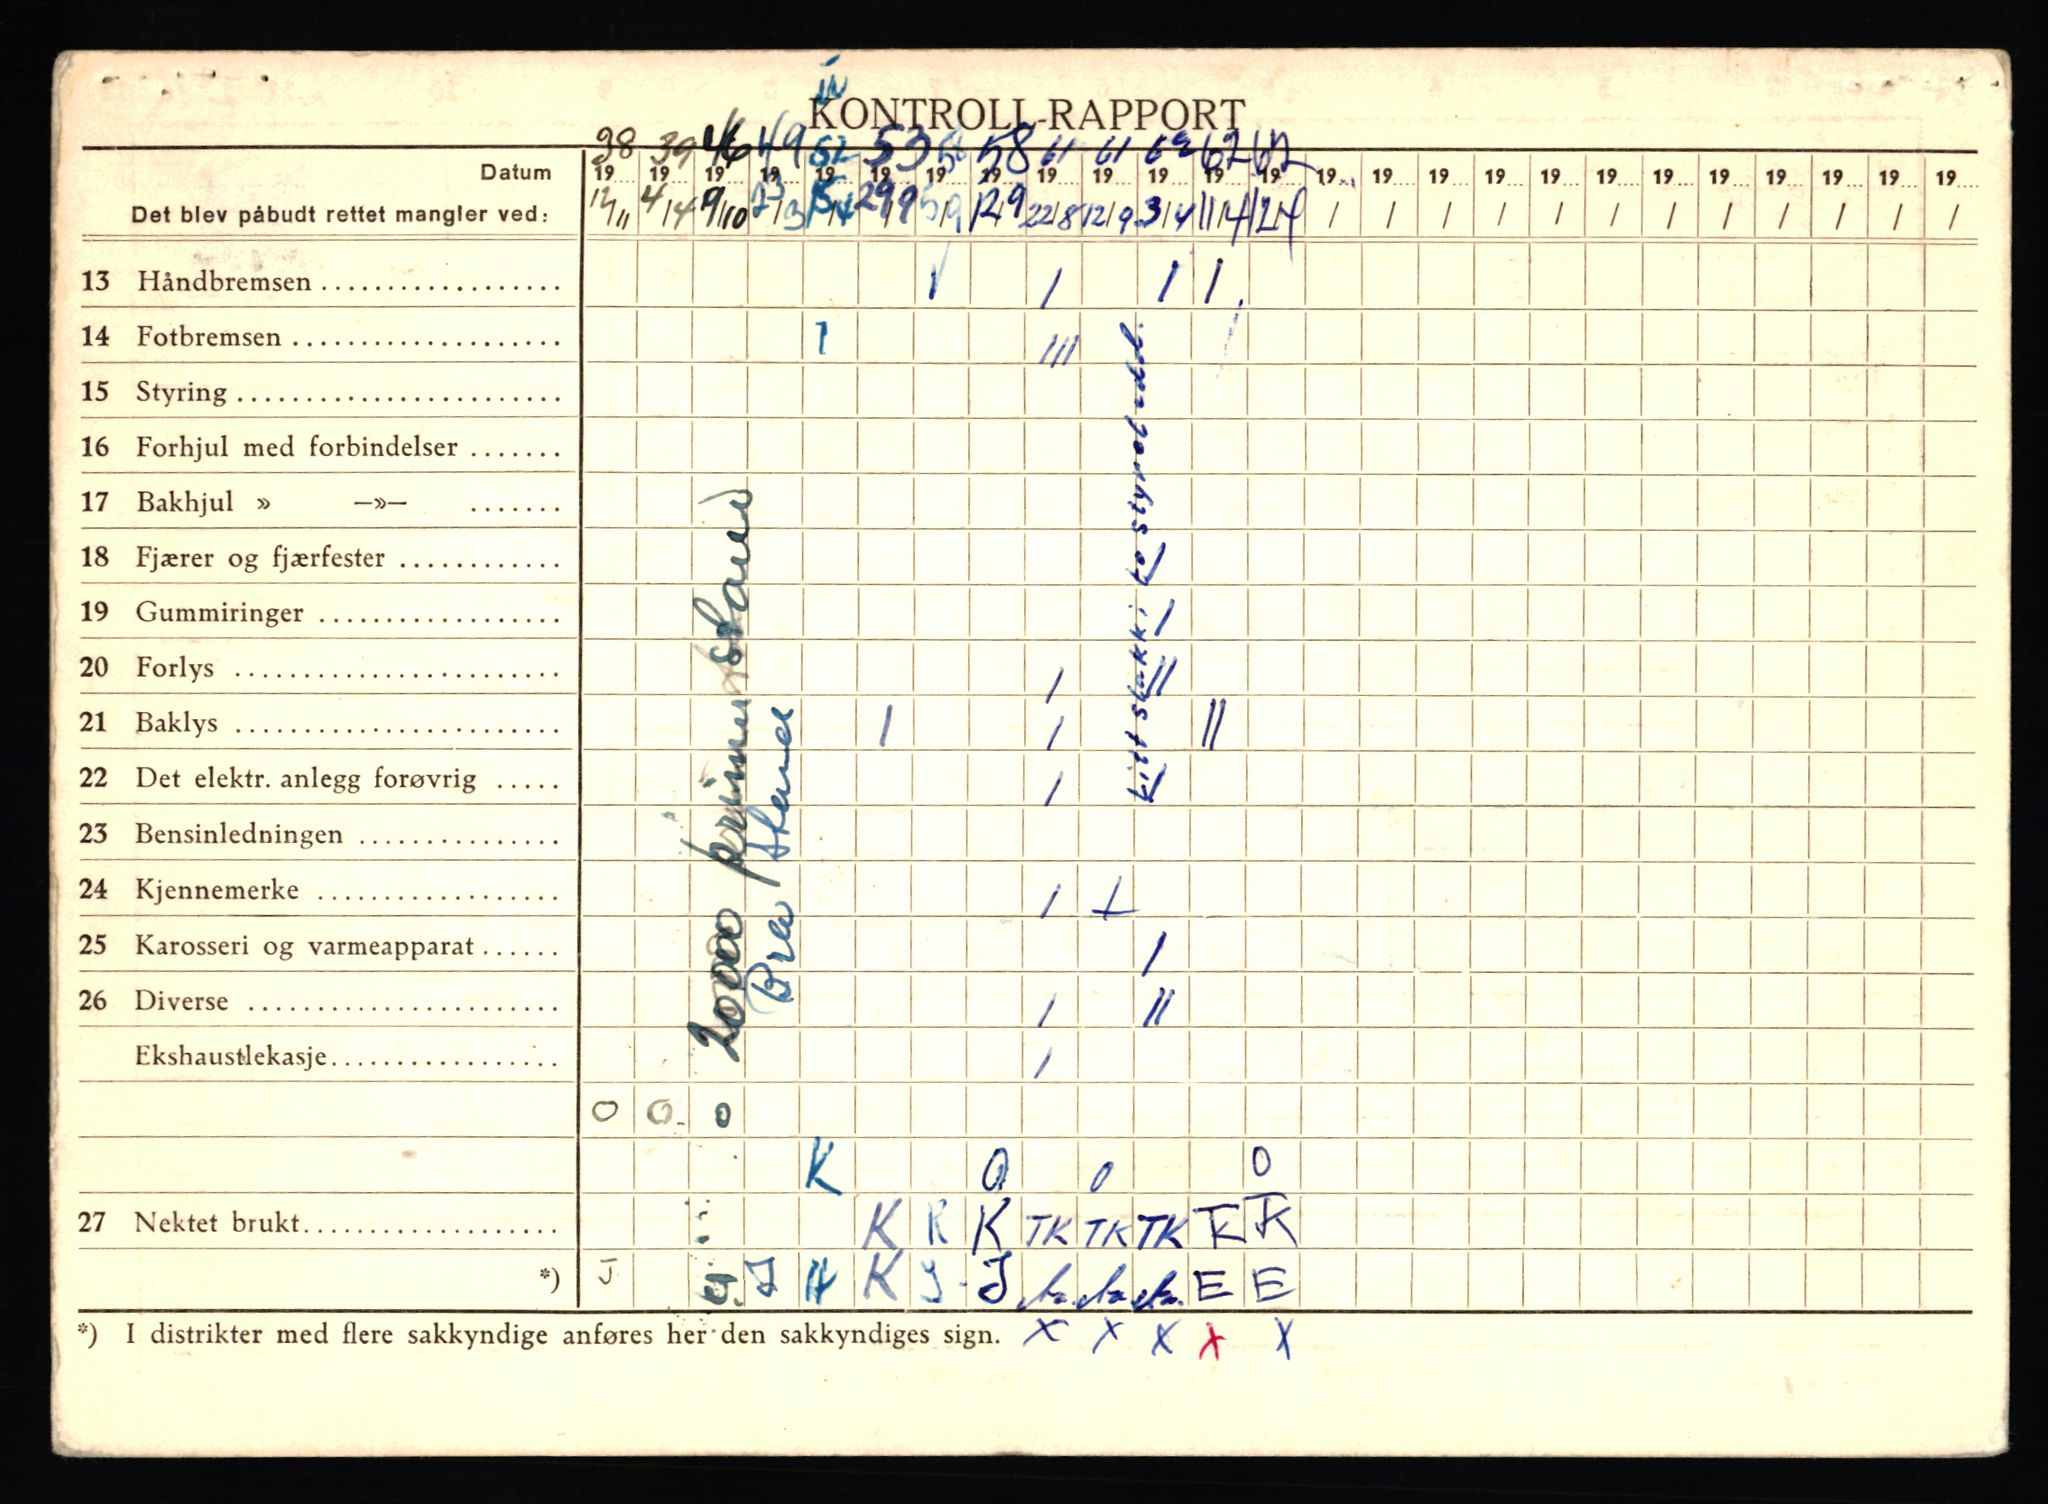 in
KONTROLL-RAPPORT
38 39 46 49 52 53 58 58 61 61 62 62 62
Datum 19 19 19 19 19 19 19 19 19 19 19 19 19 19 19 19 19 19 19 19 19 19 19 19 19
Det blev påbudt rettet mangler ved: 12/11 4/4 9/10 23/3 15/4 29/9 5/9 12/9 22/8 12/9 3/4 11/4 12/4 / / / / / / / / / / / /
13 Håndbremsen I I I I
14 Fotbremsen I III
15 Styring
16 Forhjul med forbindelser
17 Bakhjul » —»—
18 Fjærer og fjærfester
19 Gummiringer I
20 Forlys I II
21 Baklys I I II
22 Det elektr. anlegg forøvrig I
23 Bensinledningen
24 Kjennemerke I +
25 Karosseri og varmeapparat I
26 Diverse I II
Ekshaustlekasje I
20000 prima stand
Bra stand
litt slakk i
O O O
K O O O
27 Nektet brukt K K K TK TK TK TK TK
*) J J H K J J E E
*) I distrikter med flere sakkyndige anføres her den sakkyndiges sign. X X X X X